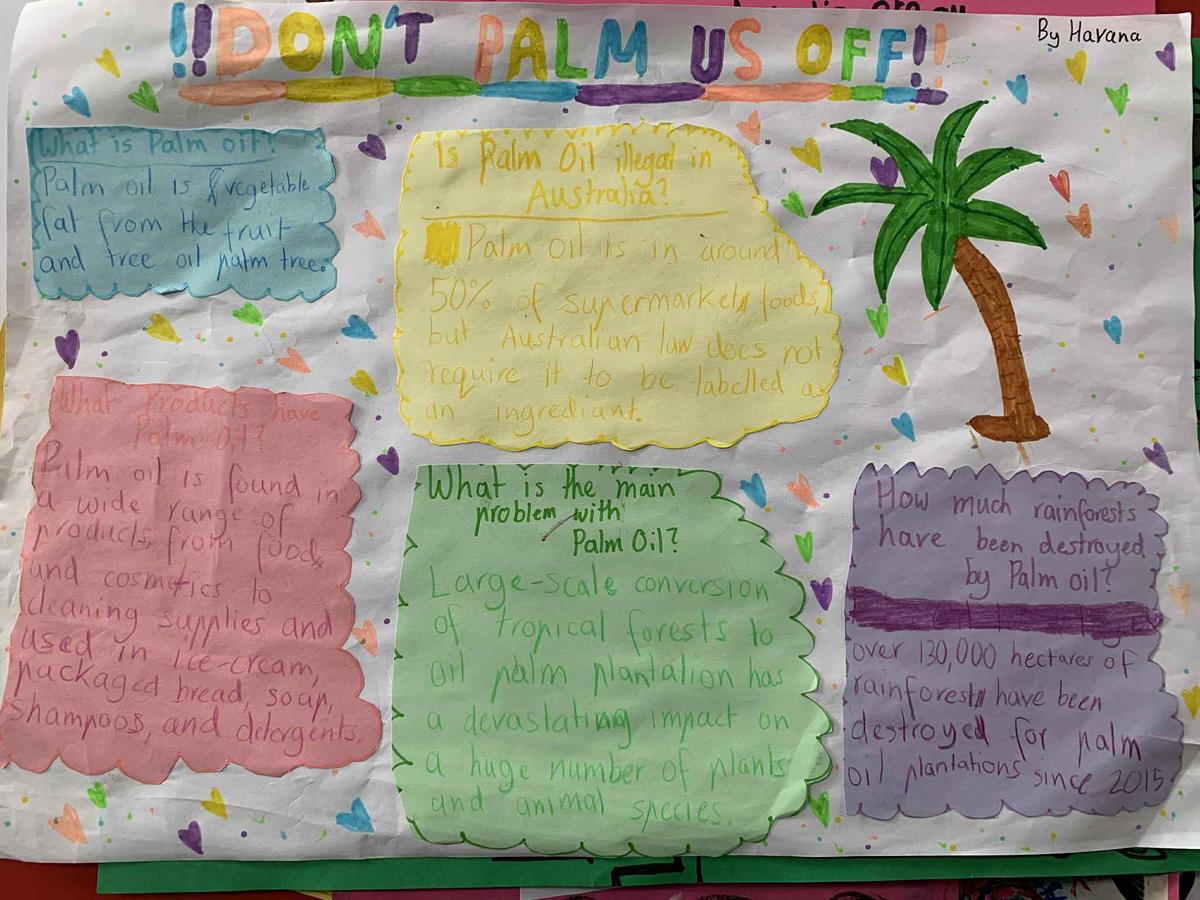 !!DON'T PALM US OFF!!
By Havana
What is Palm oil?
Palm oil is vegetable
fat from the fruit
and tree oil palm tree.
Is Palm Oil illegal in
Australia?
Palm Oil is in around
50% of supermarket foods,
but Australian law does not
require it to be labelled as
an ingrediant.
What Products have
Palm Oil?
Palm oil is found in
a wide range of
products, from food,
and cosmetics to
cleaning supplies and
used in ice-cream,
packaged bread, soap,
shampoos, and detergents.
What is the main
problem with
Palm Oil?
Large-scale conversion
of tropical forests to
oil palm plantation has
a devastating impact on
a huge number of plants
and animal species.
How much rainforests
have been destroyed
by Palm oil?
over 130,000 hectares of
rainforest have been
destroyed for palm
oil plantations since 2015